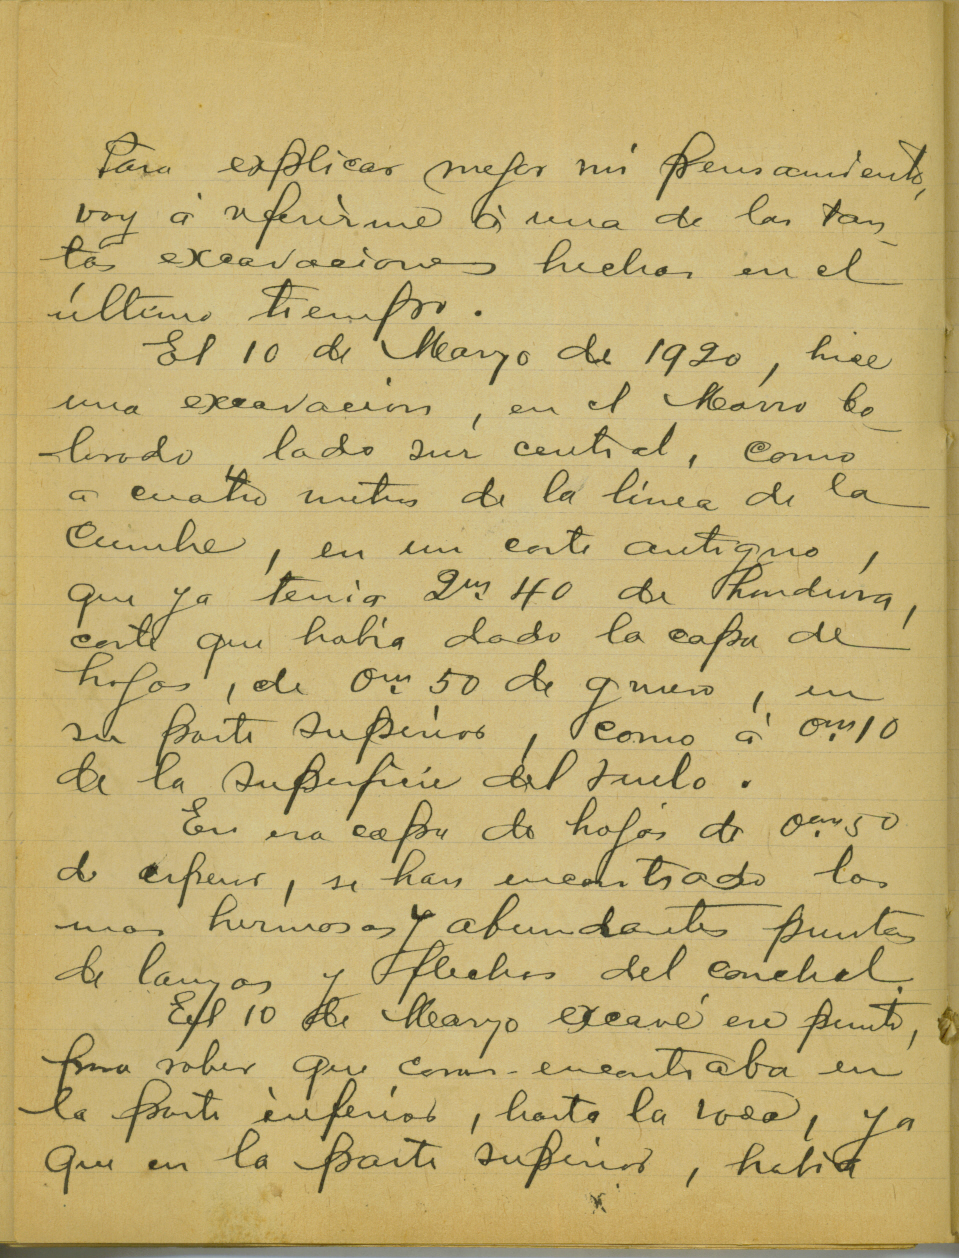 Para explicar mejor mi pensamiento,
voy á referirme á una de las tan_
tas excavaciones hechas en el
último tiempo.
El 10 de Marzo de 1920, hice
una excavación, en el Morro Co_
lorado lado sur central, como
a cuatro metros de la línea de la
cumbre, en un corte antiguo,
que ya tenía 2ms. 40 de hondura,
corte que había dado la capa de
hojas, de 0m. 50 de grueso, en
su parte superior, como á 0m. 10
de la superficie del suelo.
En esa capa de hojas de 0m. 50
de espesor, se han encontrado las
mas hermosas y abundantes puntas
de lanzas y flechas del conchal.
El 10 de Marzo excavé ese punto,
para saber que cosas encontraba en
la parte inferior, hasta la roca, ya
que en la parte superior, había